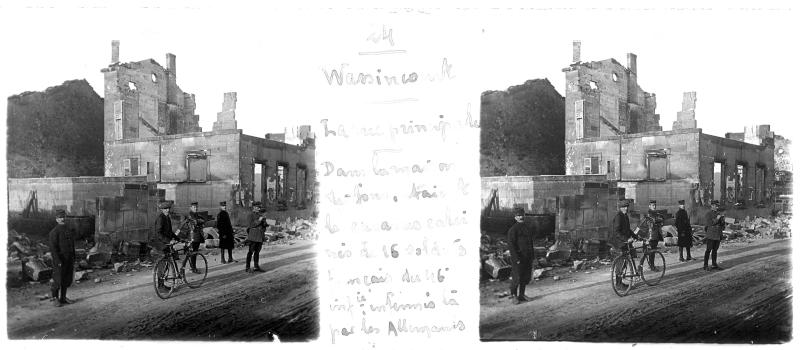 24
Wassincourt
La rue principale
Dans la maison
de fond, était
les crânes calci
nés de 16 soldats
français du 46e
inf ie internés là
par les Allemands